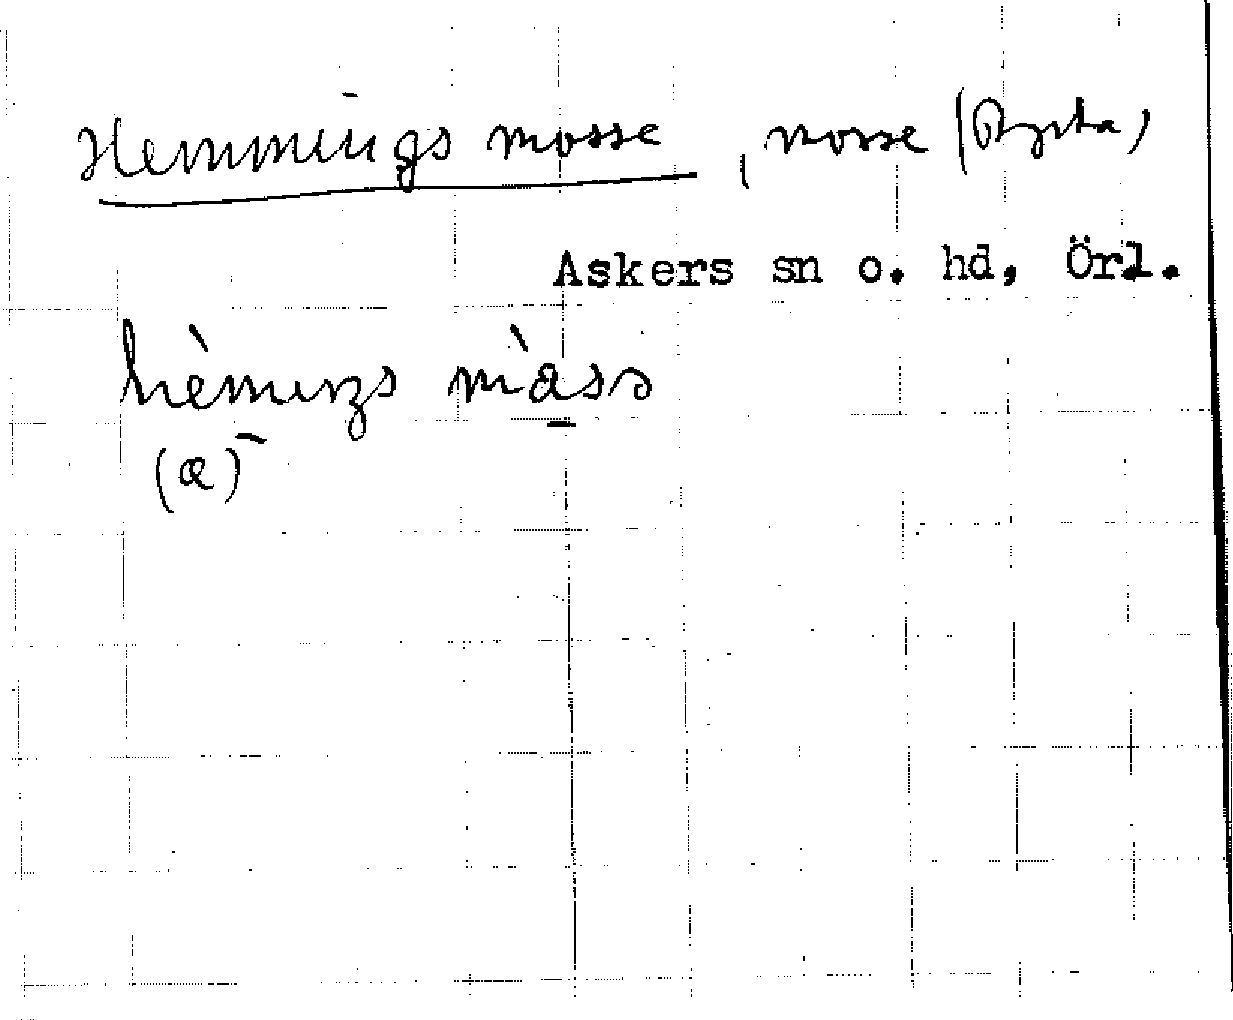 Hemmings mosse, mosse (Ryta)
Askers sn o. hd, Örl.
hèmiŋs màsə
(æ)